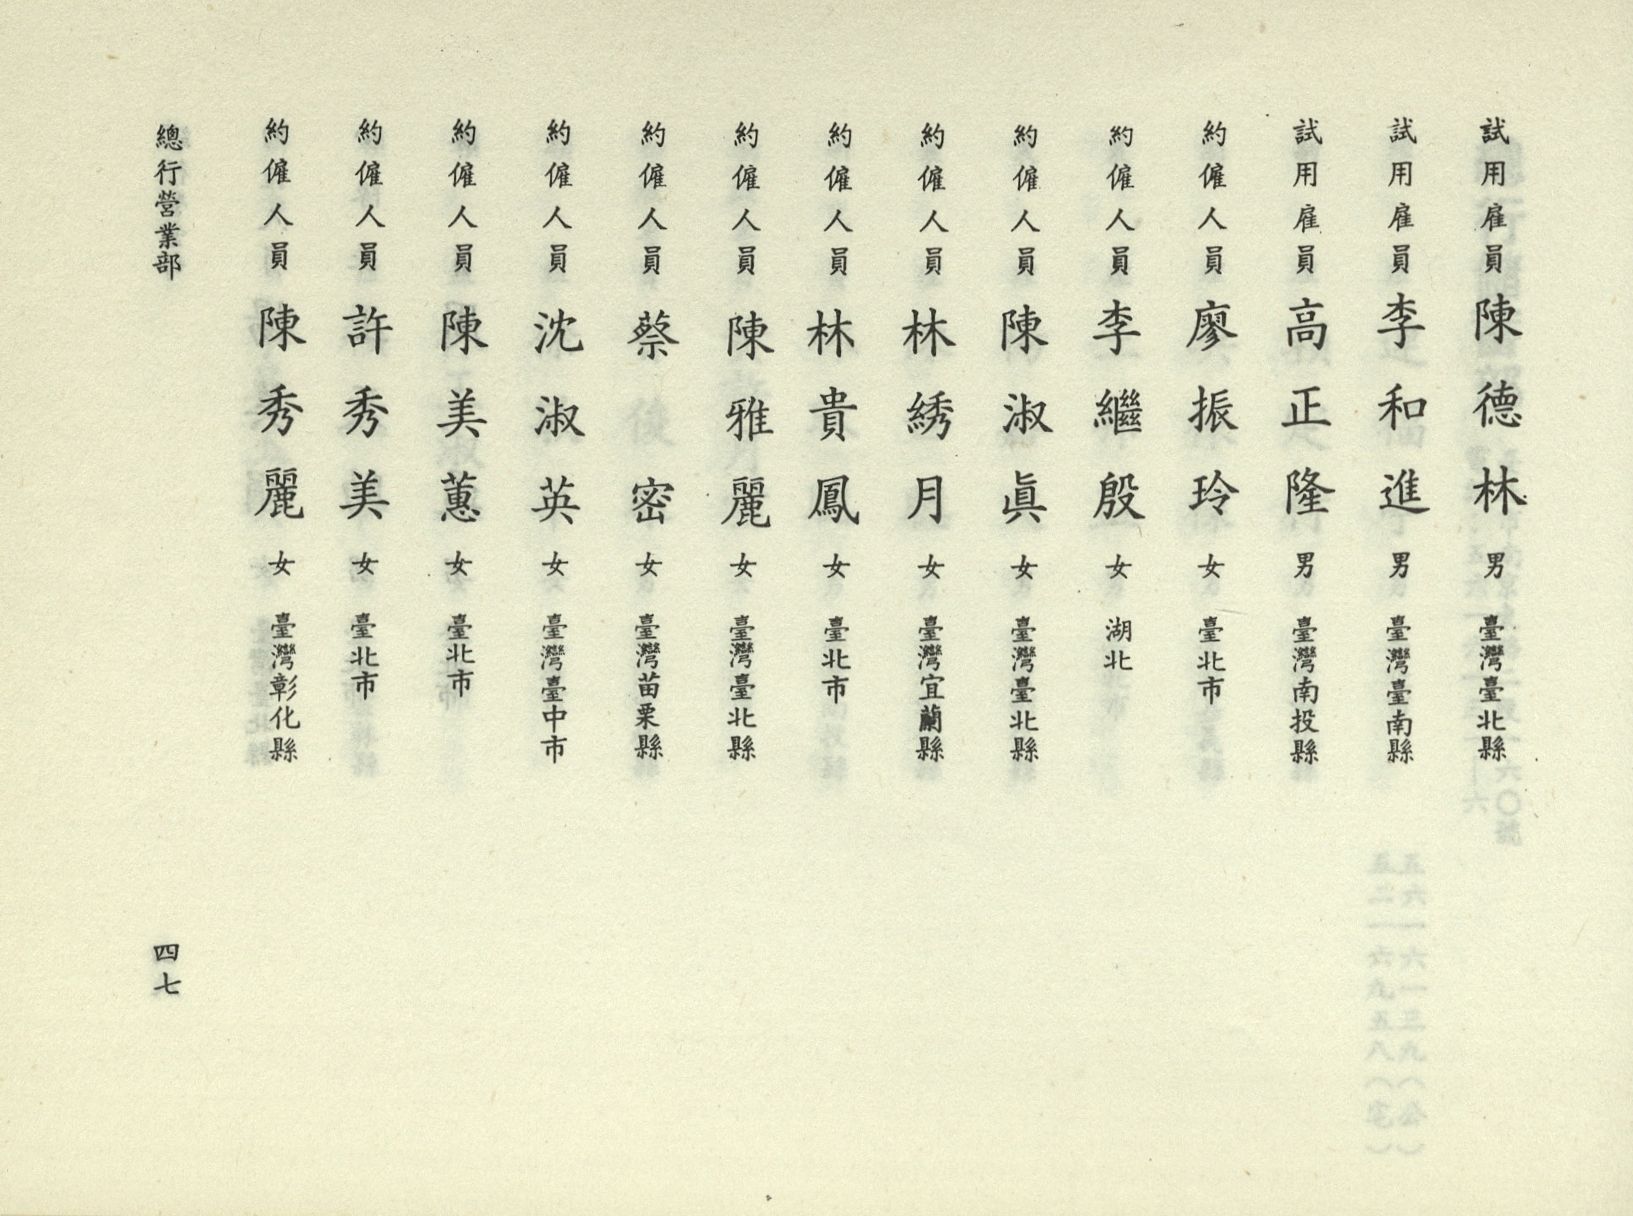 試用雇員 陳德林 男 臺灣臺北縣
試用雇員 李和進 男 臺灣臺南縣
試用雇員 高正隆 男 臺灣南投縣
約僱人員 廖振玲 女 臺北市
約僱人員 李繼殷 女 湖北
約僱人員 陳淑眞 女 臺灣臺北縣
約僱人員 林綉月 女 臺灣宜蘭縣
約僱人員 林貴鳳 女 臺北市
約僱人員 陳雅麗 女 臺灣臺北縣
約僱人員 蔡密 女 臺灣苗栗縣
約僱人員 沈淑英 女 臺灣臺中市
約僱人員 陳美蕙 女 臺北市
約僱人員 許秀美 女 臺北市
約僱人員 陳秀麗 女 臺灣彰化縣
總行營業部
四七